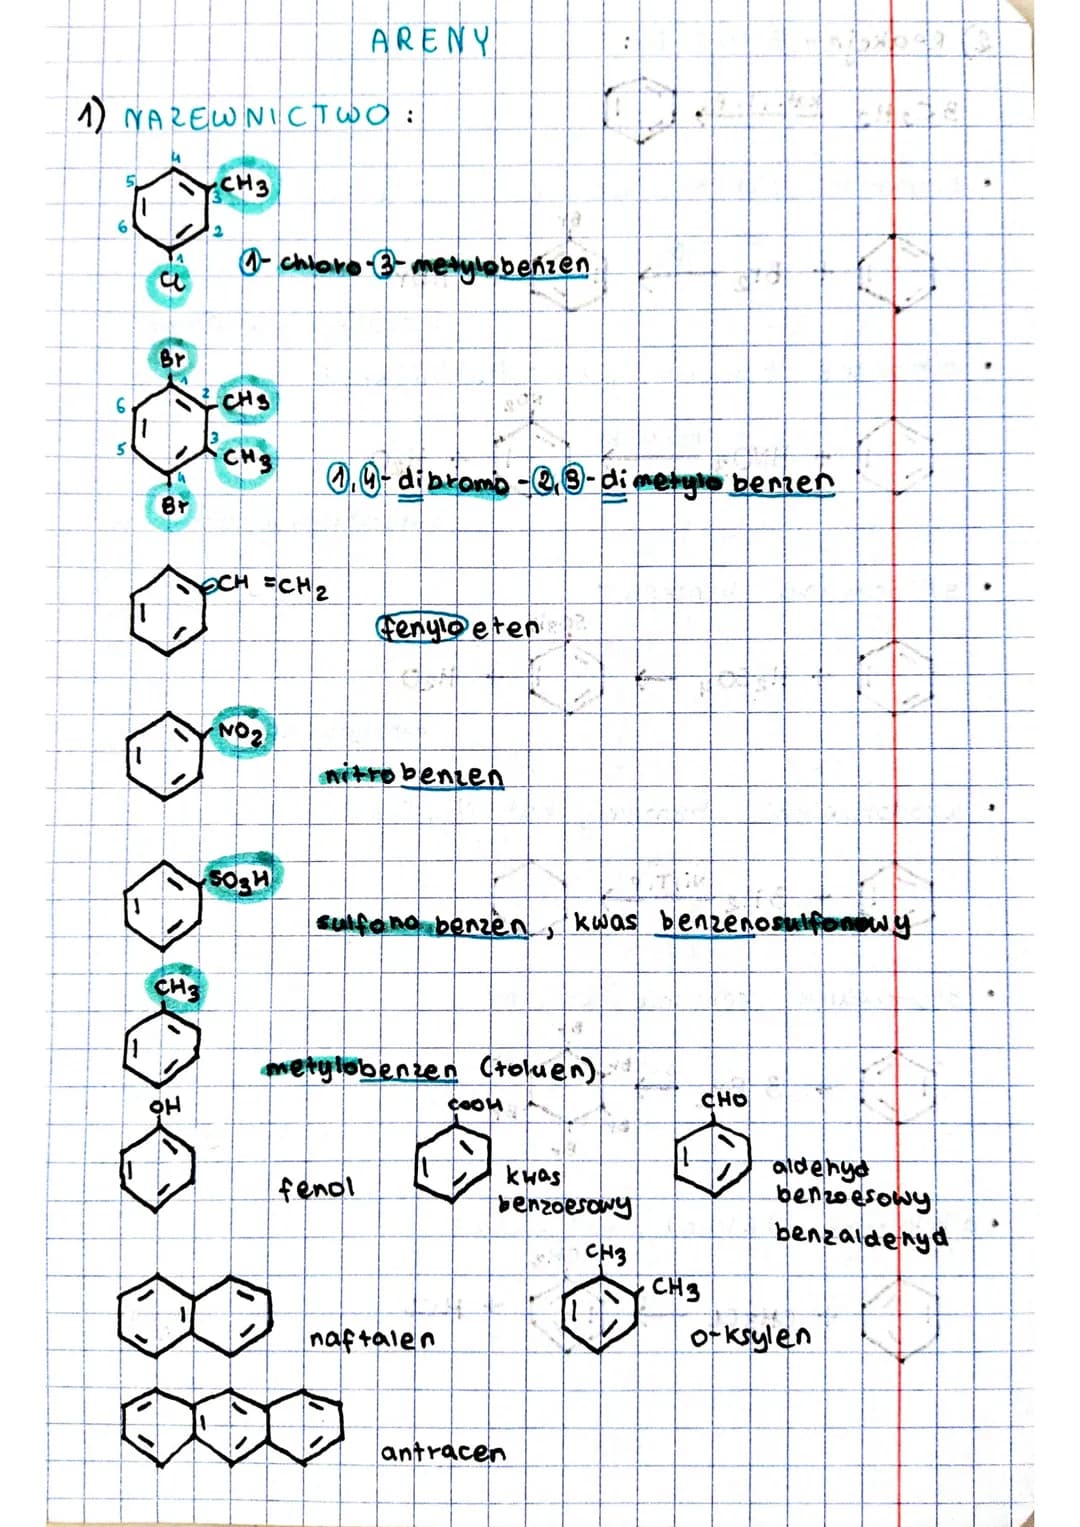 ARENY
1) NAZEWNICTWO :
4
5 CH3
3
6 2
1
Cl
1-chloro-3-metylobenzen
Br
1
6 2 CH3
5 3 CH3
4
Br
1,4-dibromo-2,3-dimetylobenzen
CH=CH2
fenyloeten
NO2
nitrobenzen
SO3H
sulfonobenzen, kwas benzenosulfonowy
CH3
metylobenzen (toluen)
OH COOH CHO
fenol
kwas
benzoesowy
aldehyd
benzoesowy
benzaldehyd
CH3
CH3
naftalen o-ksylen
antracen